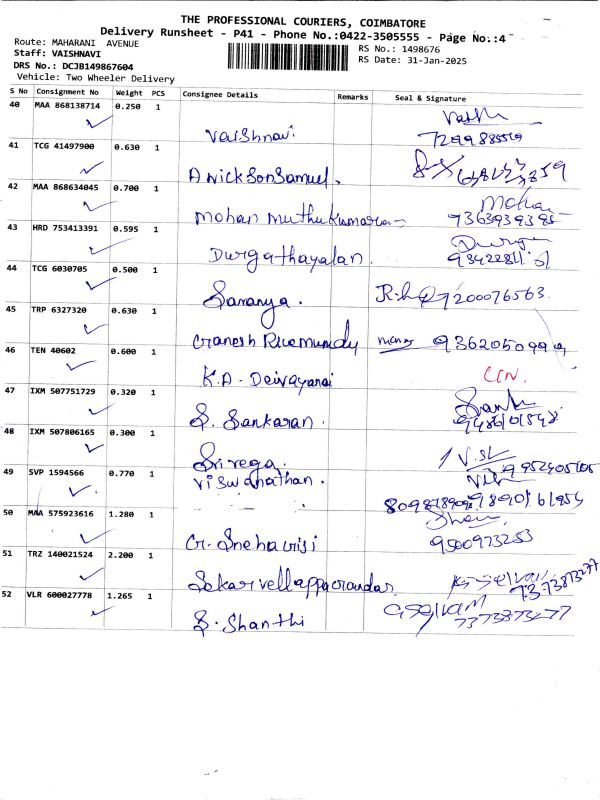 THE PROFESSIONAL COURIERS, COIMBATORE
Delivery Runsheet - P41 - Phone No.:0422-3505555 - Page No.:4
Route: MAHARANI AVENUE
Staff: VAISHNAVI
DRS No.: DCJB149867604
Vehicle: Two Wheeler Delivery
RS No.: 1498676
RS Date: 31-Jan-2025
S No Consignment No Weight PCS Consignee Details Remarks Seal & Signature
40 MAA 868138714 0.250 1
Vaishnavi
41 TCG 41497900 0.630 1
A Nickson Samuel.
42 MAA 868634045 0.700 1
Mohan Muthukumaran
43 HRD 753413391 0.595 1
Durgathayalan
44 TCG 6030705 0.500 1
Saranya. 7200076563
45 TRP 6327320 0.630 1
Ganesh 9362050999
46 TEN 40602 0.600 1
K.A. Deivayanai
47 IXM 507751729 0.320 1
S. Sankaran.
48 IXM 507806165 0.300 1
Srirega.
49 SVP 1594566 0.770 1
Viswanathan.
50 MAA 575923616 1.280 1
9500973253
51 TRZ 140021524 2.200 1
7373873277
52 VLR 600027778 1.265 1
S. Shanthi 7373873277